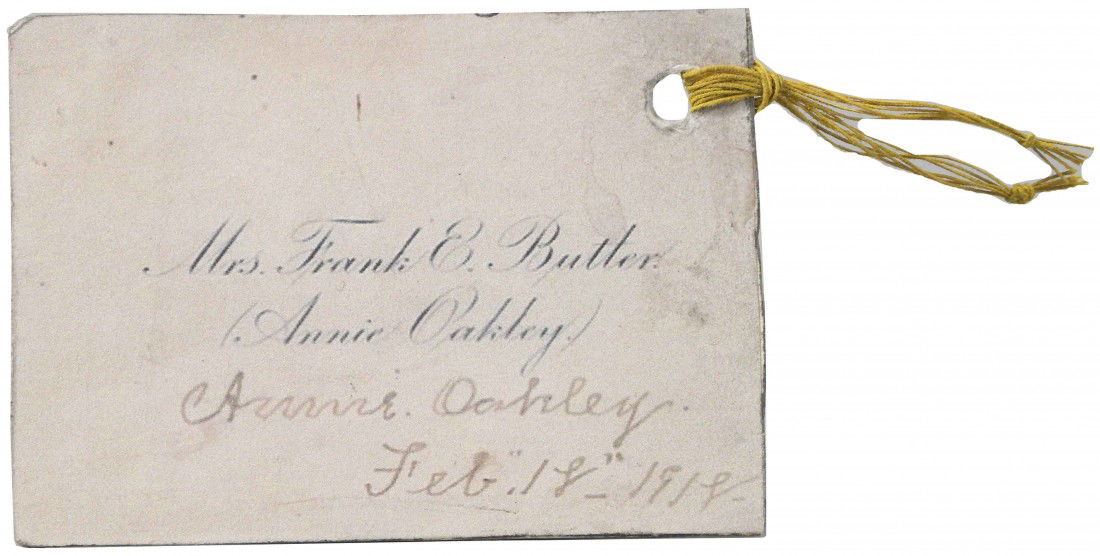 Mrs. Frank E. Butler.
(Annie Oakley.)
Annie. Oakley.
Feb". 18" 1918